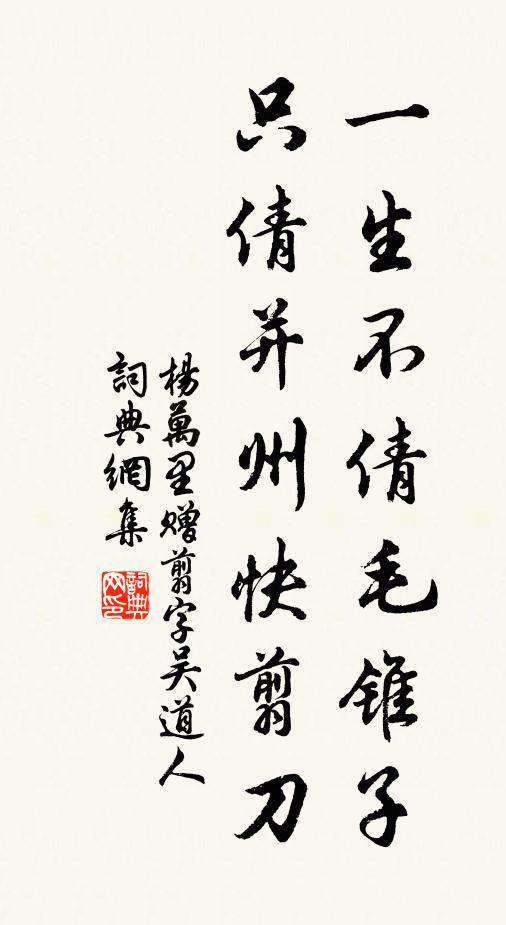 一生不倩毛錐子
只倩并州快翦刀
楊萬里贈翦字吳道人
詞典網集
詞典网印